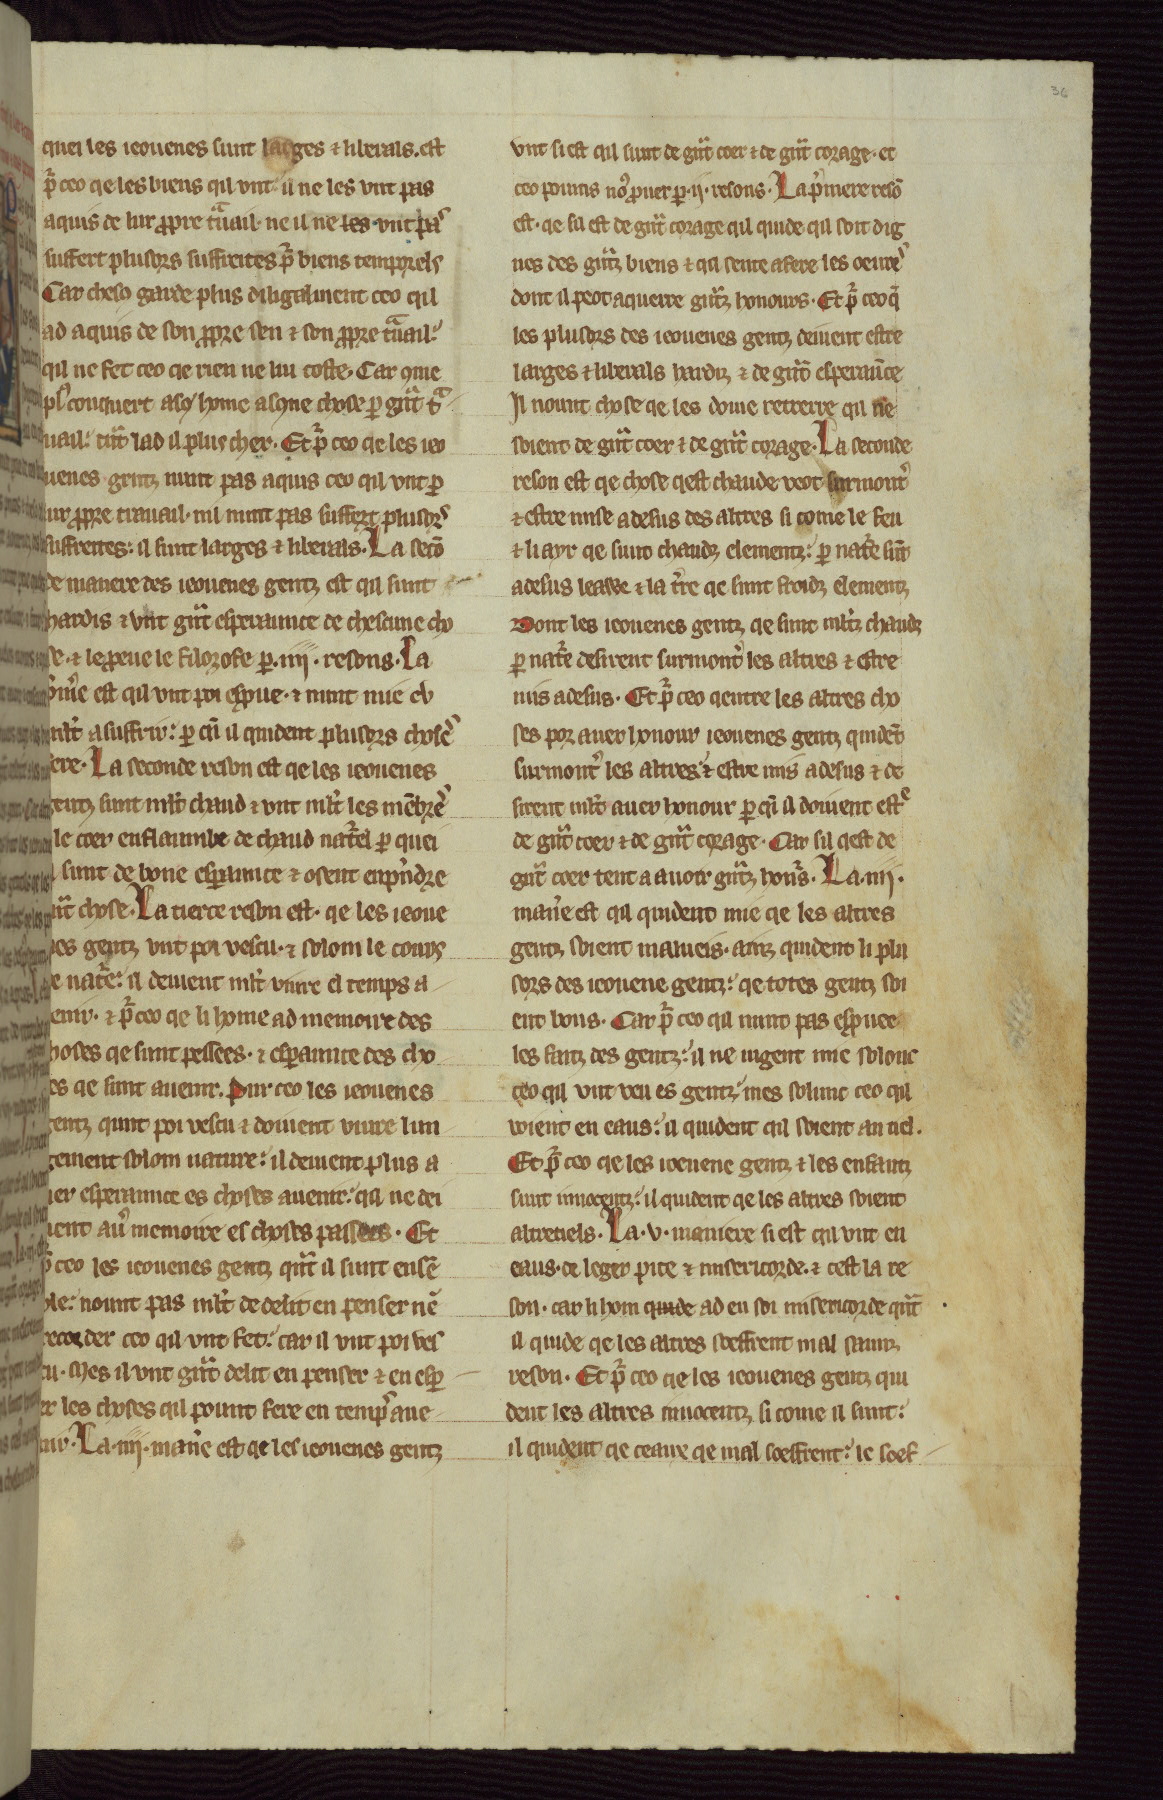 36
quei les ieouenes sunt larges ⁊ liberals. est
p̃ ceo qe les biens qil vnt· il ne les vnt pas
aquis de lur ꝓpre t̾uail· ne il ne les vnt pas
suffert plusors suffreites p̃ biens temporels
Car chesꝯ garde plus diligaument ceo qil
ad aquis de son ꝓpre sen ⁊ son ꝓpre t̾uail:
qil ne fet ceo qe rien ne lui coste. Car ꝯme
plꝰ conquert asꝯ home asꝯne chose ꝑ gũt t̾a
uail: tũt lad il plus cher. Et p̃ ceo qe les ieo
uenes gentz nunt pas aquis ceo qil vnt ꝑ
lur ꝓpre trauail· ni nunt pas suffert plusors
suffreites: il sunt larges ⁊ liberals. La secõ
de manere des ieouenes gentz est qil sunt
hardis ⁊ vnt gũt esperaunce de chescune cho
se· ⁊ le ꝓeue le filozofe ꝑ .iiii. resons. La
p̾me est qil vnt poi esproue· ⁊ nunt mie eu
mlt̾ a suffrir: ꝑ qũ il quident plusors choses
fere. La seconde reson est qe les ieouenes
gentz sunt mlt̾ chaud ⁊ vnt mlt̾ les mẽbres
⁊ le coer enflaumbe de chaud nat̾el ꝑ quei
il sunt de bone esperaunce ⁊ osent enp̾ndre
gũt chose. La tierce reson est· qe les ieoue
nes gentz vnt poi vescu· ⁊ solom le cours
de nat̾e: il deiuent mlt̾ viure el temps a
uenir· ⁊ p̃ ceo qe li home ad memoire des
choses qe sunt passees· ⁊ esperaunce des cho
ses qe sunt auenir. Pur ceo les ieouenes
gentz qunt poi vescu ⁊ doiuent viure lun
gement solom nature: il deiuent plus a
uer esperaunce es choses auenir: qil ne dei
uent au̾ memoire es choses passees· Et
p̃ ceo les ieouenes gentz qũt il sunt ensẽ
ble: nount pas mlt̾ de delit en penser ne
recorder ceo qil vnt fet: car il vnt poi ves
cu· Mes il vnt gũt delit en penser ⁊ en esp̾
er les choses qil pount fere en temps aue
nir. La .iiii. man̾e est qe les ieouenes gentz
vnt si est qil sunt de gũt coer ⁊ de gũt corage· et
ceo poums noꝰ ꝓuer ꝑ .ii. resons. La p̾miere resõ
est· qe sil est de gũt corage qil quide qil soit dig
nes des gũtz biens ⁊ qil sente afere les oeures
dont il peot aquerre gũtz honours· Et p̃ ceo q̃
les plusors des ieouenes gentz deiuent estre
larges ⁊ liberals hardiz ⁊ de gũt esperaũce
Il nount chose qe les doiue retrerre qil ne
soient de gũt coer ⁊ de gũt corage. La seconde
reson est qe chose qest chaude veot surmont̾
⁊ estre mise adesus des altres si come le feu
⁊ li ayr qe sunt chaudz elementz: ꝑ nat̾e sũt
adesus leawe ⁊ la t̾re qe sunt froidz elementz
Dont les ieouenes gentz qe sunt mlt̾z chaudz
ꝑ nat̾e desirent surmont̾ les altres ⁊ estre
mis adesus· Et p̃ ceo qentre les altres cho
ses por auer honour ieouenes gentz quidẽt
surmont̾ les altres ⁊ estre mis adesus ⁊ de
sirent mlt̾ auer honour ꝑ qũ il doiuent estre
de gũt coer ⁊ de gũt corage· Car sil qest de
gũt coer tent a auoir gũtz hon̾s. La .iiii.
man̾e est qil quident mie qe les altres
gentz soient malueis· ainz quident li plu
sors des ieouene gentz: qe totes gentz soi
ent bons. Car p̃ ceo qil nunt pas esproee
les faitz des gentz: il ne iugent mie solonc
ceo qil vnt veu es gentz· mes solunc ceo qil
voient en eaus: il quident qil soient autiel.
Et p̃ ceo qe les ioeuene gentz ⁊ les enfantz
sunt innocentz: il quident qe les altres soient
altretiels. La .v. maniere si est qil vnt en
eaus· de leger pite ⁊ misericorde· ⁊ cest la re
son· car li hom quide ad en soi misericorde qũt
il quide qe les altres soeffrent mal sanz
reson. Et p̃ ceo qe les ieouenes gentz qui
dent les altres innocentz si come il sunt:
il quident qe ceaux qe mal soeffrent: le soef